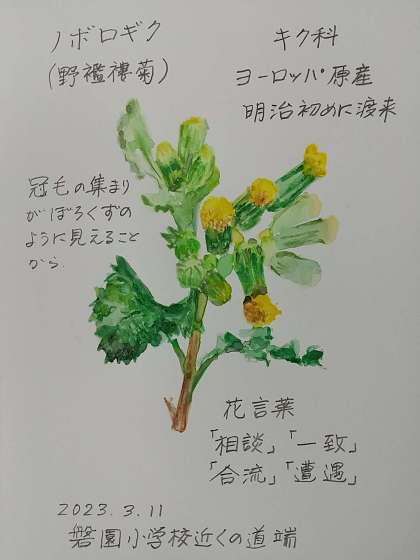 ノボロギク
(野襤褸菊)
キク科
ヨーロッパ原産
明治初めに渡来
冠毛の集まり
がぼろくずの
ように見えること
から.
花言葉
「相談」「一致」
「合流」「遭遇」
2023.3.11
磐園小学校近くの道端